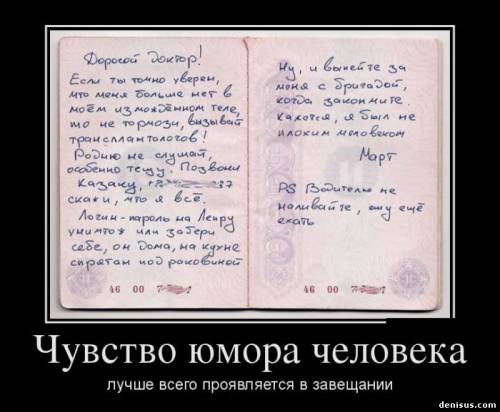 Дорогой доктор!
Если ты точно уверен,
что меня больше нет в
моём измождённом теле,
то не тормози, вызывай
трансплантологов!
Родню не слушай,
особенно тещу. Позвони
Казаку,
скажи, что я всё.
Логин-пароль на Лепру
уничтож или забери
себе, он дома, на кухне
спрятан под раковиной
46 00 7
Ну, и выпейте за
меня с бригадой,
когда закончите.
Кажется, я был не
плохим человеком
Март
PS Водителю не
наливайте, ему ещё
ехать
46 00 7
Чувство юмора человека
лучше всего проявляется в завещании
denisus.com